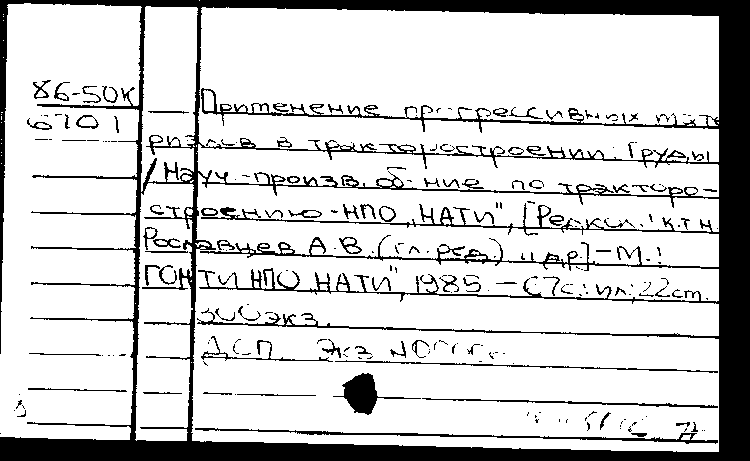 86-50К
6701
Применение прогрессивных мате
риалов в тракторостроении: Труды
/Науч.-произв. об-ние по тракторо-
строению - НПО „НАТИ", [Редкол.: к.т.н.
Рославцев А.В. (гл. ред) и др]. - М.:
ГОНТИ НПО „НАТИ", 1985. - 67с.: ил; 22см.
300экз.
ДСП. Экз